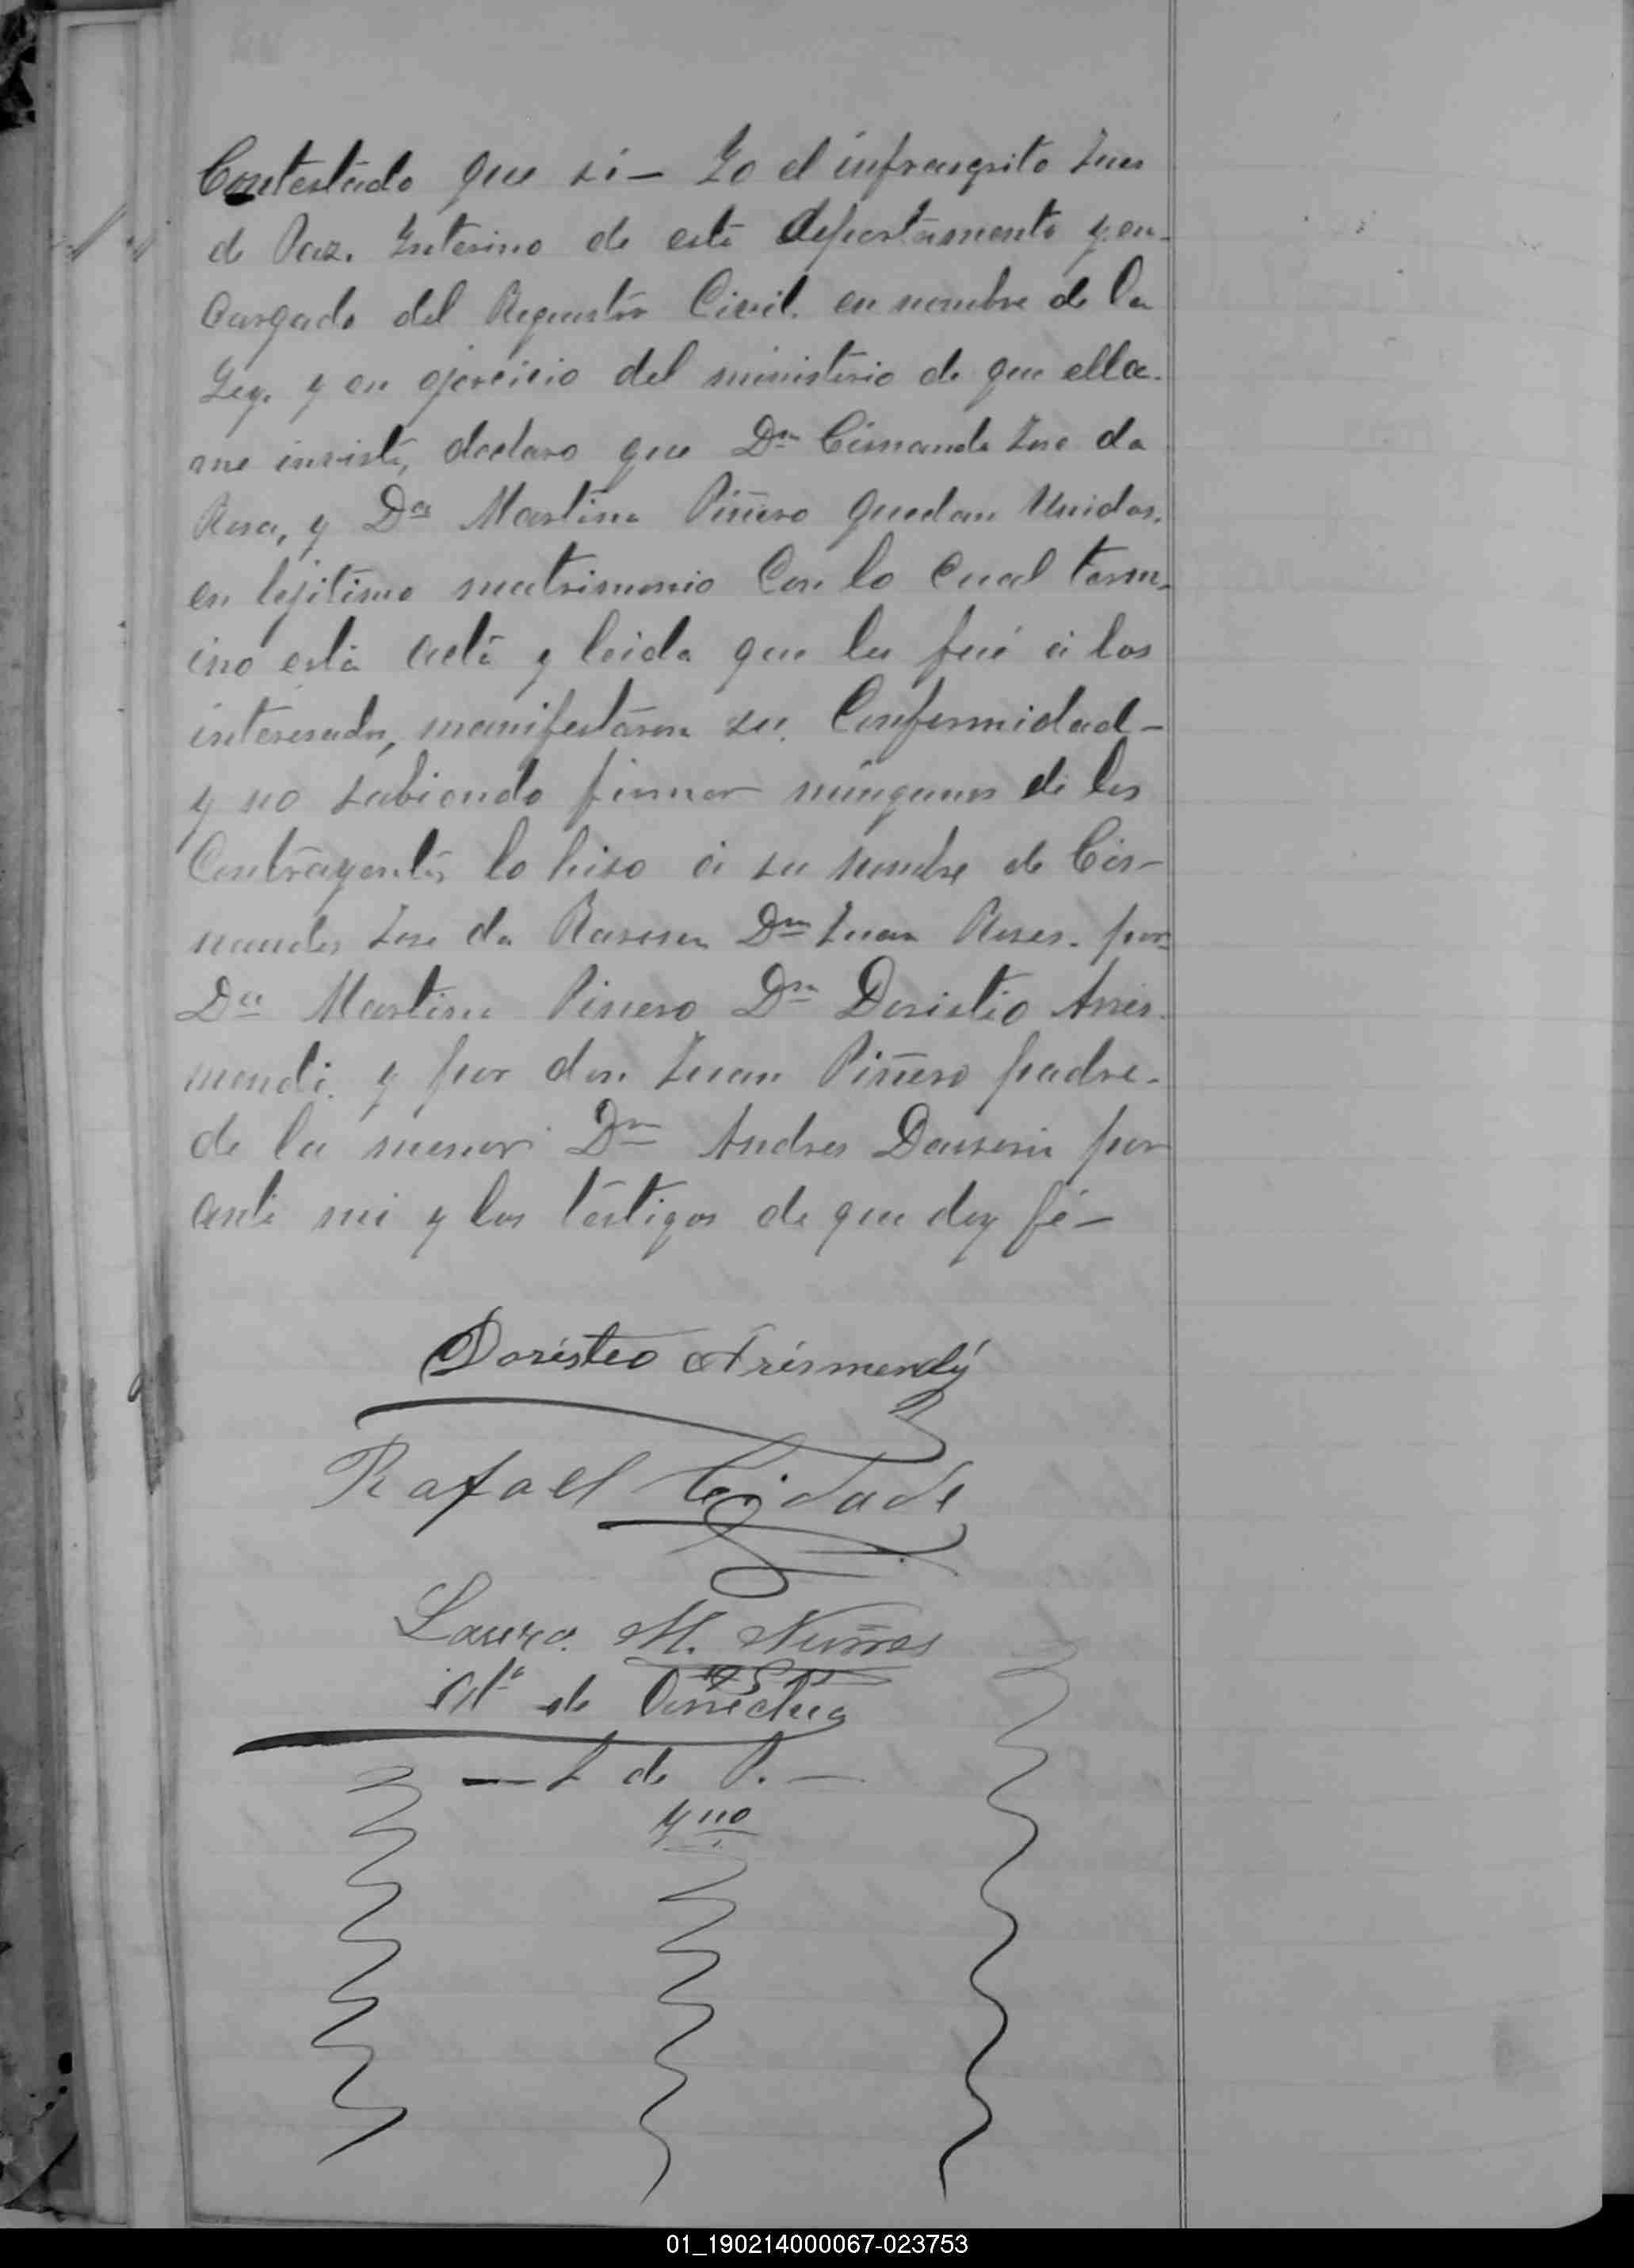 Contestado que si – Yo el infrasqrito Jues
de Paz. Ynterino de este departamento y en-
cargado del Reguistro Civil. en nombre de la
Ley. y en ejercicio del ministerio de que ella.
me inviste, declaro que Dn Jose da
Rosa, y Da Martina Piñero quedan Unidos.
en lejitimo matrimonio Con lo Cual term-
ino esta acta y leida que les fué á los
interesados, manifestaron su. Conformidad –
y no sabiendo firmar ningunos de los
Contrayentes lo hiso á su nombre de Cis-
nandes Jose da Dn Juan Roses. por
Da Martina Piñero Dn Doristio Aris-
mendi. y por don Juan Piñero padre.
de la menor Dn Andres por
ante mi y los testigos de que doy fé –
Doristeo Arismendy
Rafael Cidade
Lauro. M. Nuñes
de
– J de P. –
Yno
01_190214000067-023753